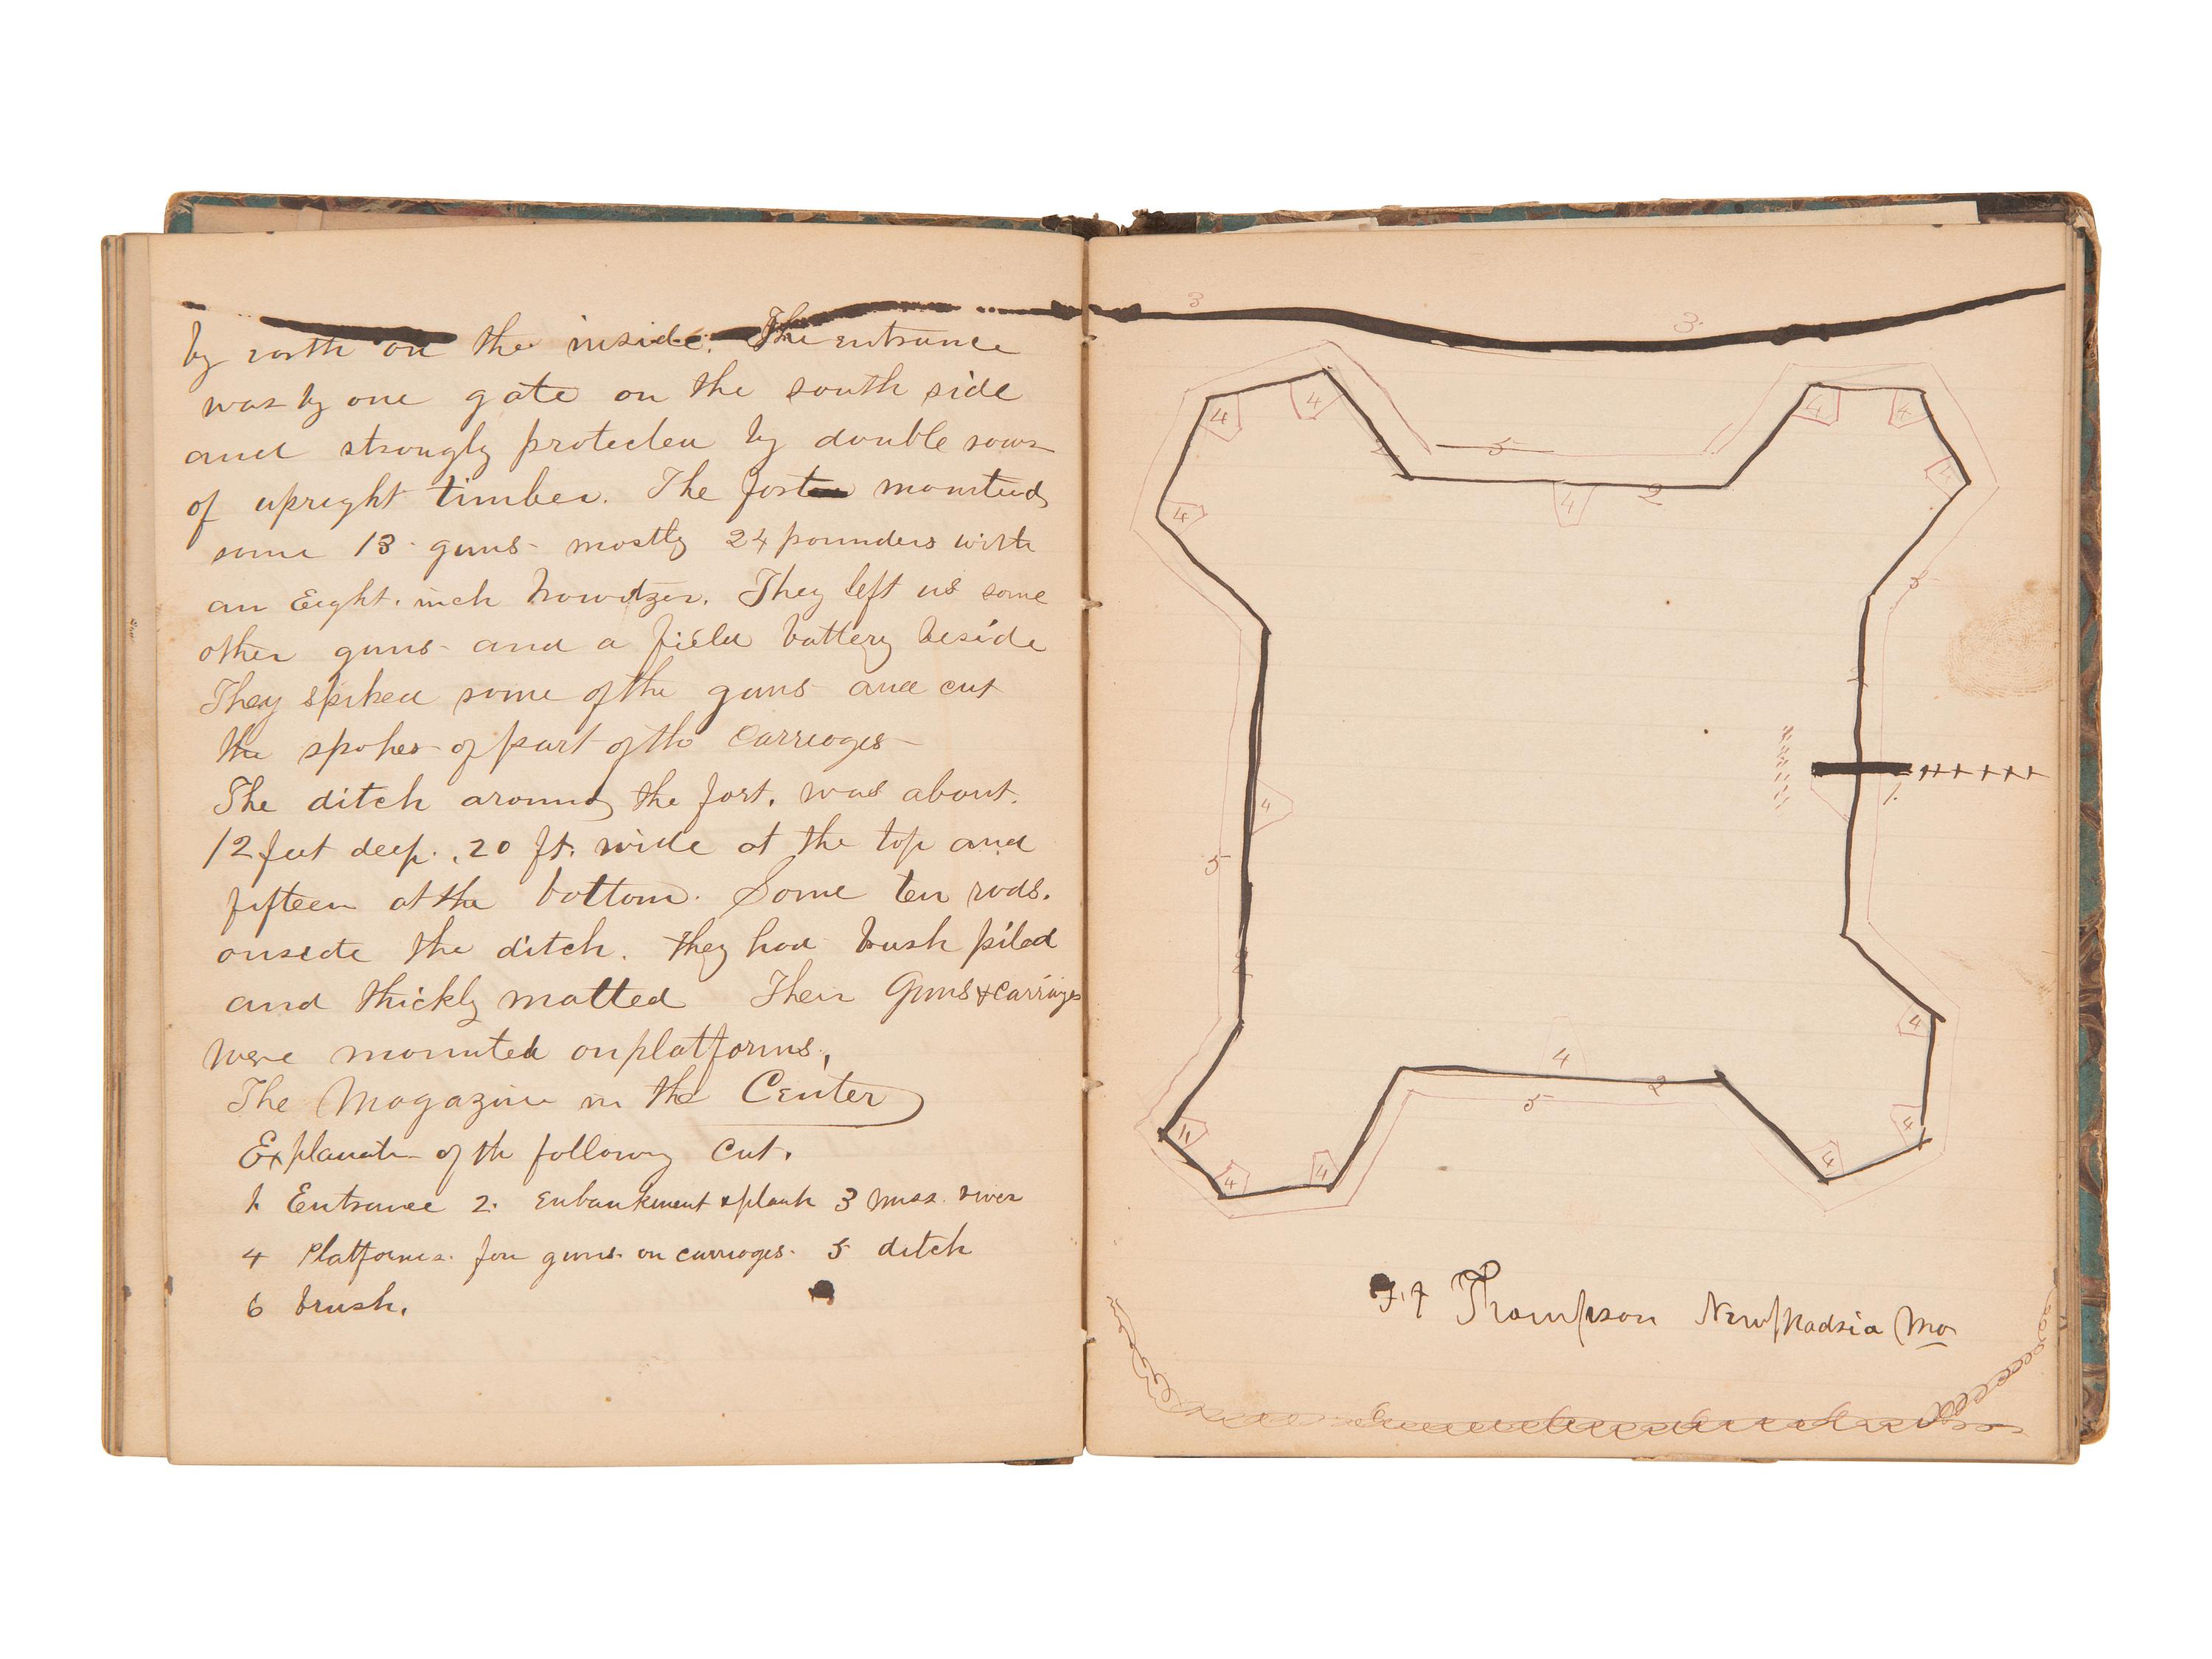 by earth on the inside. The entrance
was by one gate on the south side
and strongly protected by double rows
of upright timber. The fort mounted
some 13 guns mostly 24 pounders with
an Eight. inch howitzer. They left us some
other guns and a field battery beside
They spiked some of the guns and cut
the spokes of part of the carriages
The ditch around the fort. was about.
12 feet deep. 20 ft. wide at the top and
fifteen at the bottom. Some ten rods.
outside the ditch. they had brush piled
and thickly matted Their Guns & carriages
were mounted on platforms,
The Magazine in the Center
Explanatn of th following cut.
1. Entrance 2. Enbankment & plank 3 Miss. river
4 Platforms. for guns. on carriages. 5 ditch
6 brush.
3
3
4
4
4
4
5
2
4
2
4
5
4
1.
5
4
4
2
5
4
4
4
4
4
Ft Thompson New Madria Mo